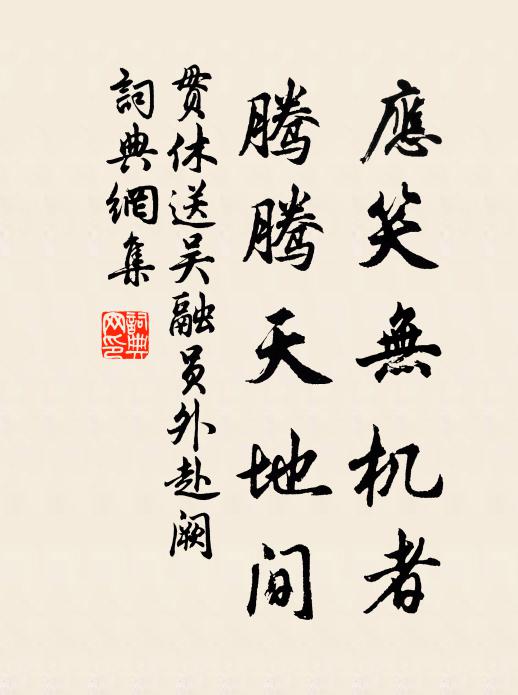 應笑無机者
腾腾天地间
贯休送吴融员外赴阙
詞典網集
詞典網印